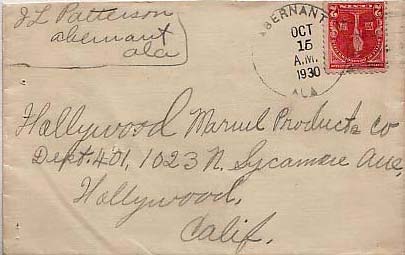 J L Patterson
abernant
ala
ABERNANT
OCT
15
A.M.
1930
ALA
2 2
Hollywood Marvel Products Co
Dept. 401, 1023 N. Sycamore Ave,
Hollywood,
Calif.